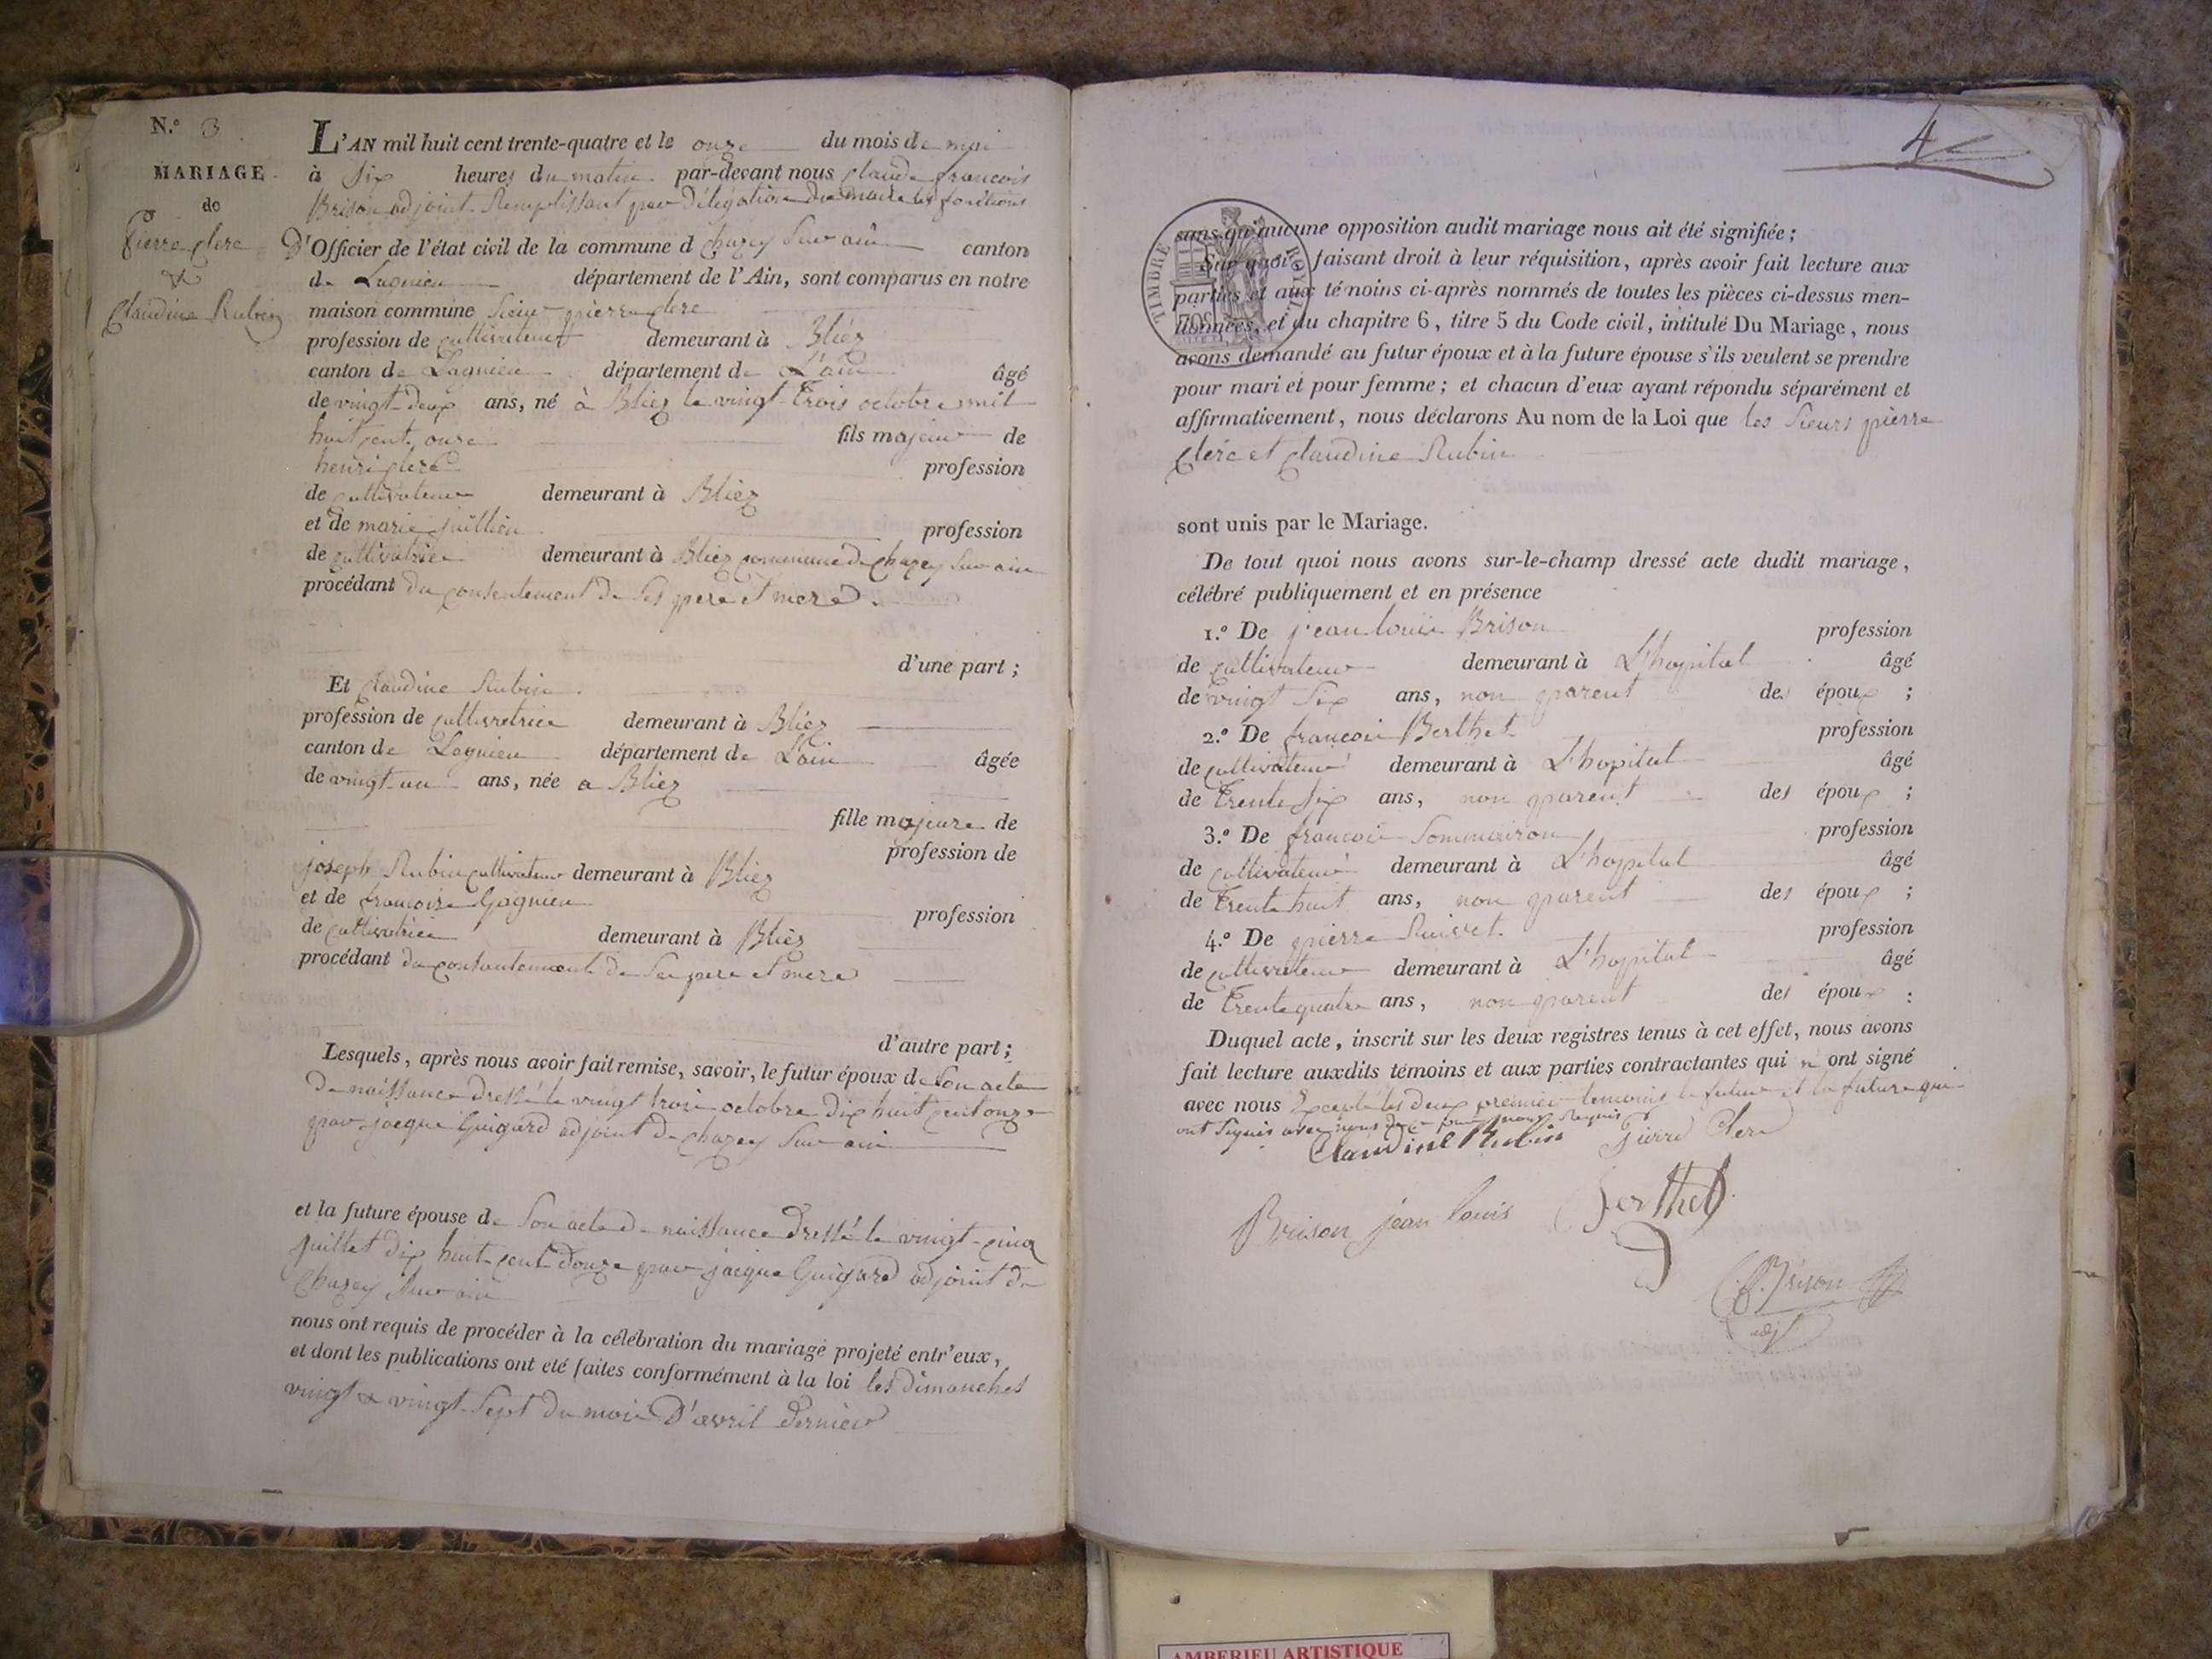 N.o 3
MARIAGE
de
Pierre Clerc
&
Claudine Rubin
L'AN mil huit cent trente-quatre et le onze du mois de mai
à six heures du matin par-devant nous claude francois
Brison adjoint Remplissant par délégation du maire les fonctions
D'Officier de l'état civil de la commune d chazey Sur ain canton
de Lagnieu département de l'Ain, sont comparus en notre
maison commune Sieur pierre clerc
profession de cultivateur demeurant à Bliez
canton de Lagnieu département de L'ain âgé
de vingt-deux ans, né à Bliez le vingt-trois octobre mil
huit cent onze fils majeur de
henri clerc profession
de cultivateur demeurant à Bliez
et de marie juillien profession
de cultivatrice demeurant à Bliez commune de chazey Sur ain
procédant du consentement de Ses pere et mere.
d'une part ;
Et claudine Rubin
profession de cultivatrice demeurant à Bliez
canton de Lagnieu département de L'ain âgée
de vingt-un ans, née a Bliez
fille majeure de
profession de
joseph Rubin cultivateur demeurant à Bliez
et de francoise Gagnieu profession
de cultivatrice demeurant à Bliez
procédant du consentement de Ses pere et mere
d'autre part ;
Lesquels, après nous avoir fait remise, savoir, le futur époux de Son acte
De naissance dressé le vingt trois octobre dix huit cent onze
par jacque Guigard adjoint de chazey Sur ain
et la future épouse de Son acte de naissance dressé le vingt-cinq
juillet dix huit cent douze par jacque Guigard adjoint de
chazey Sur ain
nous ont requis de procéder à la célébration du mariage projeté entr'eux,
et dont les publications ont été faites conformément à la loi les dimanches
vingt & vingt-Sept du mois D'avril dernier
4
TIMBRE ROYAL
sans qu'aucune opposition audit mariage nous ait été signifiée ;
Sur quoi, faisant droit à leur réquisition, après avoir fait lecture aux
parties et aux témoins ci-après nommés de toutes les pièces ci-dessus men-
tionnées, et du chapitre 6, titre 5 du Code civil, intitulé Du Mariage, nous
avons demandé au futur époux et à la future épouse s'ils veulent se prendre
pour mari et pour femme ; et chacun d'eux ayant répondu séparément et
affirmativement, nous déclarons Au nom de la Loi que les Sieurs pierre
Clerc et claudine Rubin
sont unis par le Mariage.
De tout quoi nous avons sur-le-champ dressé acte dudit mariage,
célébré publiquement et en présence
1.o De jean louis Brison profession
de cultivateur demeurant à L'hopital âgé
de vingt Six ans, non parent des époux ;
2.o De francois Berthet profession
de cultivateur demeurant à L'hopital âgé
de trente Six ans, non parent des époux ;
3.o De francois Sommeiron profession
de cultivateur demeurant à L'hopital âgé
de trente huit ans, non parent des époux ;
4.o De pierre Ruivet profession
de cultivateur demeurant à L'hopital âgé
de trente quatre ans, non parent des époux .
Duquel acte, inscrit sur les deux registres tenus à cet effet, nous avons
fait lecture auxdits témoins et aux parties contractantes qui n'ont signé
avec nous Excepté les deux premier temoins le futur et la future qui
ont Signés avec nous de ce requis
Claudine Rubin Pierre Clerc
Brison jean louis Berthet
C.f. Brison
adjt
AMBERIEU ARTISTIQUE